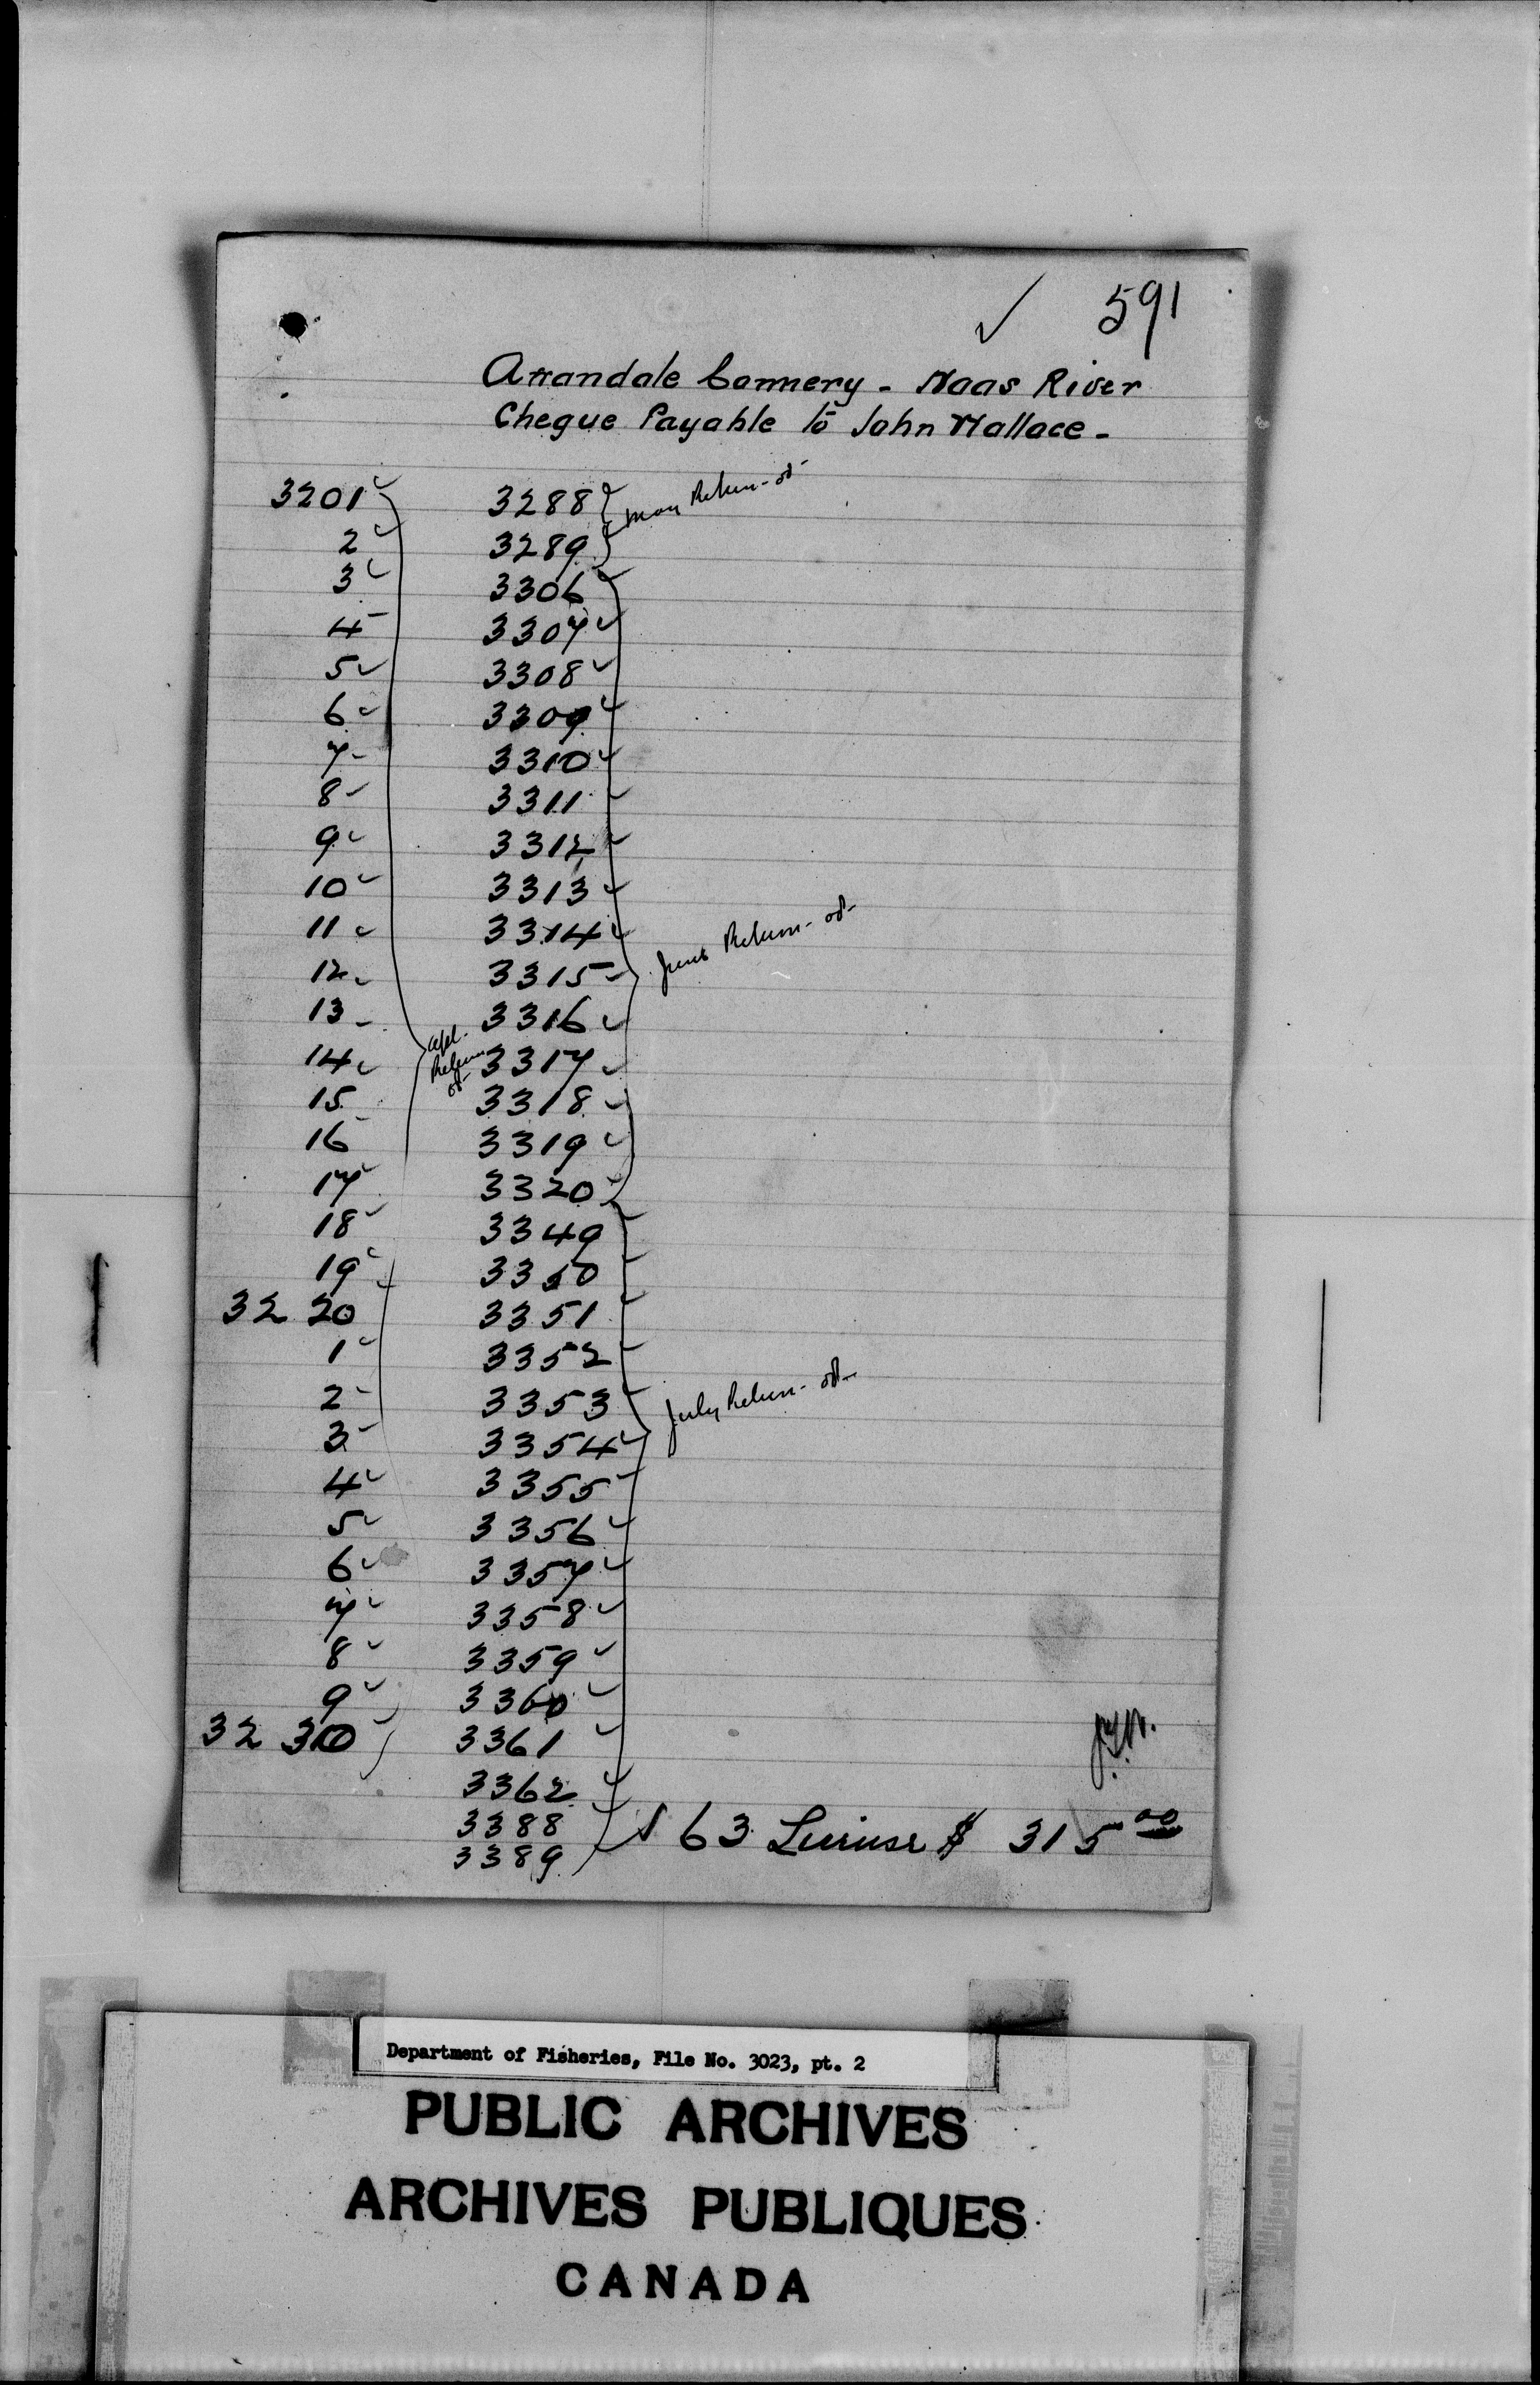 591
Arrandale Cannery - Naas River
Cheque Payable to John Wallace -
3201 3288 May Return - od -
2 3289
3 3306
4 3307
5 3308
6 3309
7 3310
8 3311
9 3312
10 3313
11 3314 June Return - od -
12 3315
13 3316
14 3317 Apl. Return od -
15 3318
16 3319
17 3320
18 3349
19 3350
32 20 3351
1 3352
2 3353 July Return - od -
3 3354
4 3355
5 3356
6 3357
7 3358
8 3359
9 3360
32 30 3361
3362
3388 63 $ 315 00
3389
Department of Fisheries, File No. 3023, pt. 2
PUBLIC ARCHIVES
ARCHIVES PUBLIQUES
CANADA